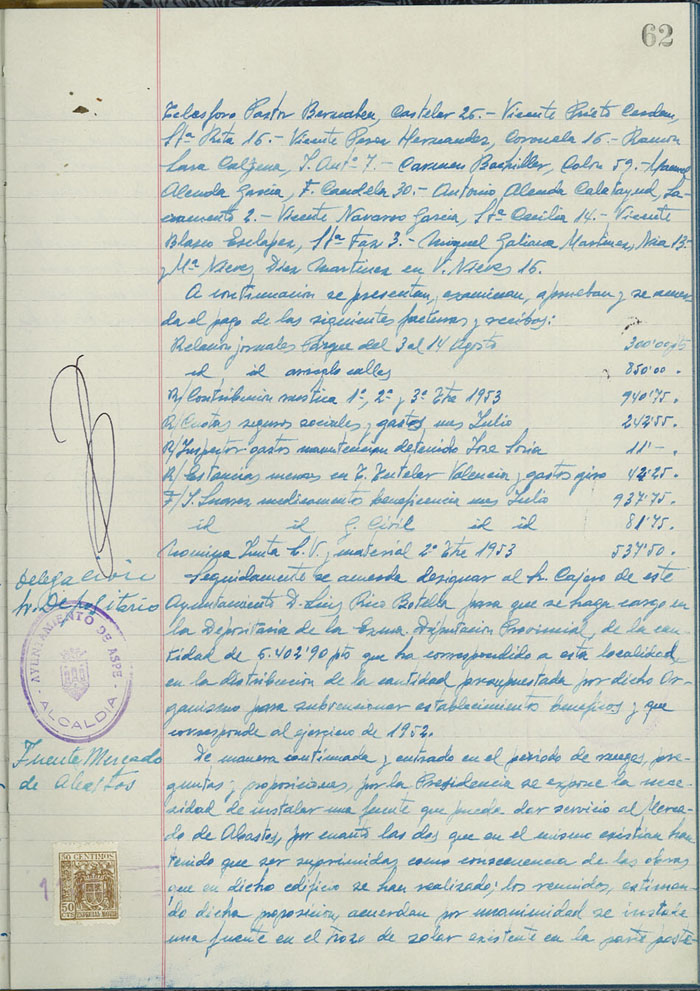 62
Telesforo Pastor Bernabeu, Castelar 26.- Vicente Prieto Cerdan,
Stª Rita 16.- Vicente Perez Hernandez, Coronela 16.- Ramon
Lara Caljena, S. Antº 7.- Carmen Bachiller, Colon 59.- Manuel
Alenda Garcia, F. Candela 30.- Antonio Alenda Calatayud, Sa-
cramento 2.- Vicente Navarro Garcia, Stª Cecilia 14.- Vicente
Blasco Esclapez, Stª Faz 3.- Miguel Galiana Martinez, Nia 13-
y Mª Nieves Diez Martinez en V. Nieves 16.
A continuacion se presentan, examinan, aprueban y se acuer-
da el pago de las siguientes facturas y recibos:
Relacion jornales Parque del 3 al 14 Agosto 300'00 pts
id id arreglo calles 850'00 .
R/ Contribucion rustica 1º, 2º y 3º Tre 1953 940'75.
R/ Cuotas seguros sociales y gastos mes Julio 243'55.
R/ Inspector gastos manutencion detenido Jose Soria 11'- .
R/ Estancias menores en T. Tutelar Valencia y gastos giro 42'25.
F/ S. Suarez medicamentos beneficencia mes Julio 937'75.
id id G. Civil id id 81'75.
Nomina Junta L. V. y material 2º Tre 1953 537'50.
Delega
Sr. Depositario
Seguidamente se acuerda designar al Sr. Cajero de este
Ayuntamiento D. Luis Rico Botella para que se haga cargo en
la Depositaria de la Exma. Diputacion Provincial, de la can-
tidad de 6.402'90 pts que ha correspondido a esta localidad,
en la distribucion de la cantidad presupuestada por dicho Or-
ganismo para subvencionar establecimientos beneficos y que
corresponde al ejercicio de 1952.
AYUNTAMIENTO DE ASPE
- ALCALDIA -
Fuente Mercado
de Abastos
De manera continuada y entrado en el periodo de ruegos, pre-
guntas y proposiciones, por la Presidencia se expone la nece-
sidad de instalar una fuente que pueda dar servicio al Merca-
do de Abastos, por cuanto las dos que en el mismo existian han
tenido que ser suprimidas como consecuencia de las obras
que en dicho edificio se han realizado; los reunidos, estiman-
do dicha proposicion, acuerdan por unanimidad se instale
una fuente en el trozo de solar existente en la parte poste
50 CENTIMOS
50